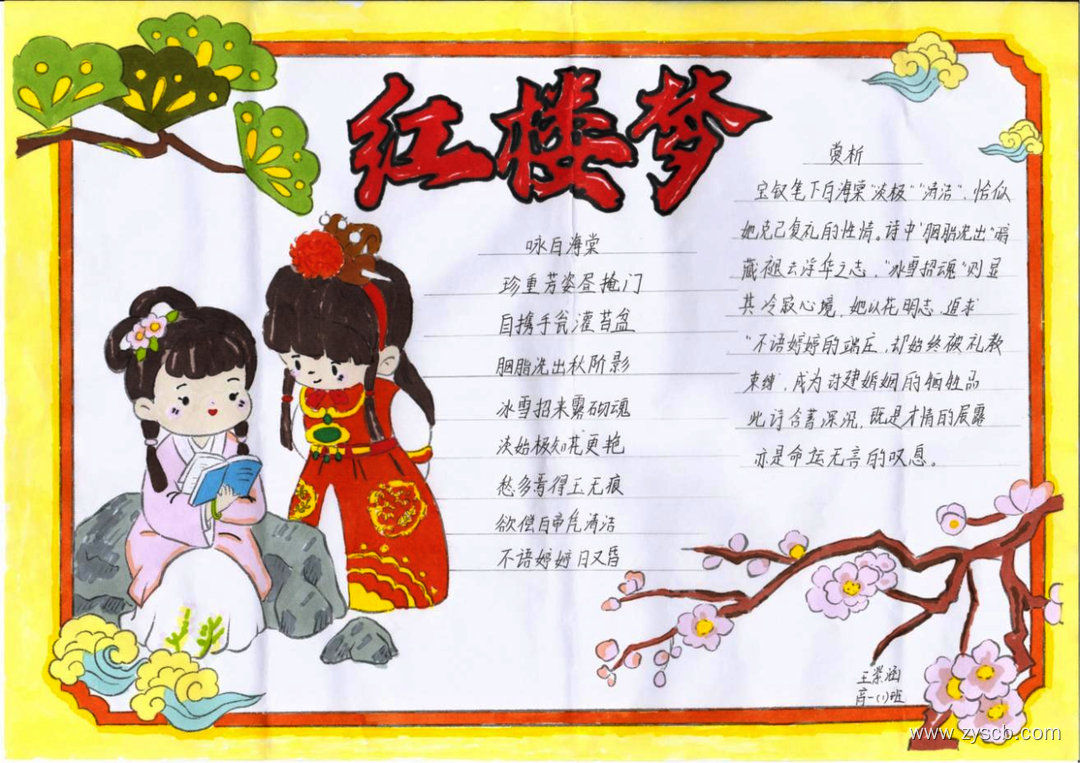 红楼梦
咏白海棠
珍重芳姿昼掩门
自携手瓮灌苔盆
胭脂洗出秋阶影
冰雪招来露砌魂
淡始极知花更艳
愁多焉得玉无痕
欲偿白帝凭清洁
不语婷婷日又昏
赏析
宝钗笔下白海棠"淡极""清洁"，恰似
她克己复礼的性情。诗中"胭脂洗出"暗
藏褪去浮华之志，"冰雪招魂"则显
其冷寂心境，她以花明志，追求
"不语婷婷的端庄，却始终被礼教
束缚，成为封建婚姻的牺牲品
此诗含蓄深沉，既是才情的展露
亦是命运无言的叹息。
王荣涵
高一(1)班
www.zyscb.com